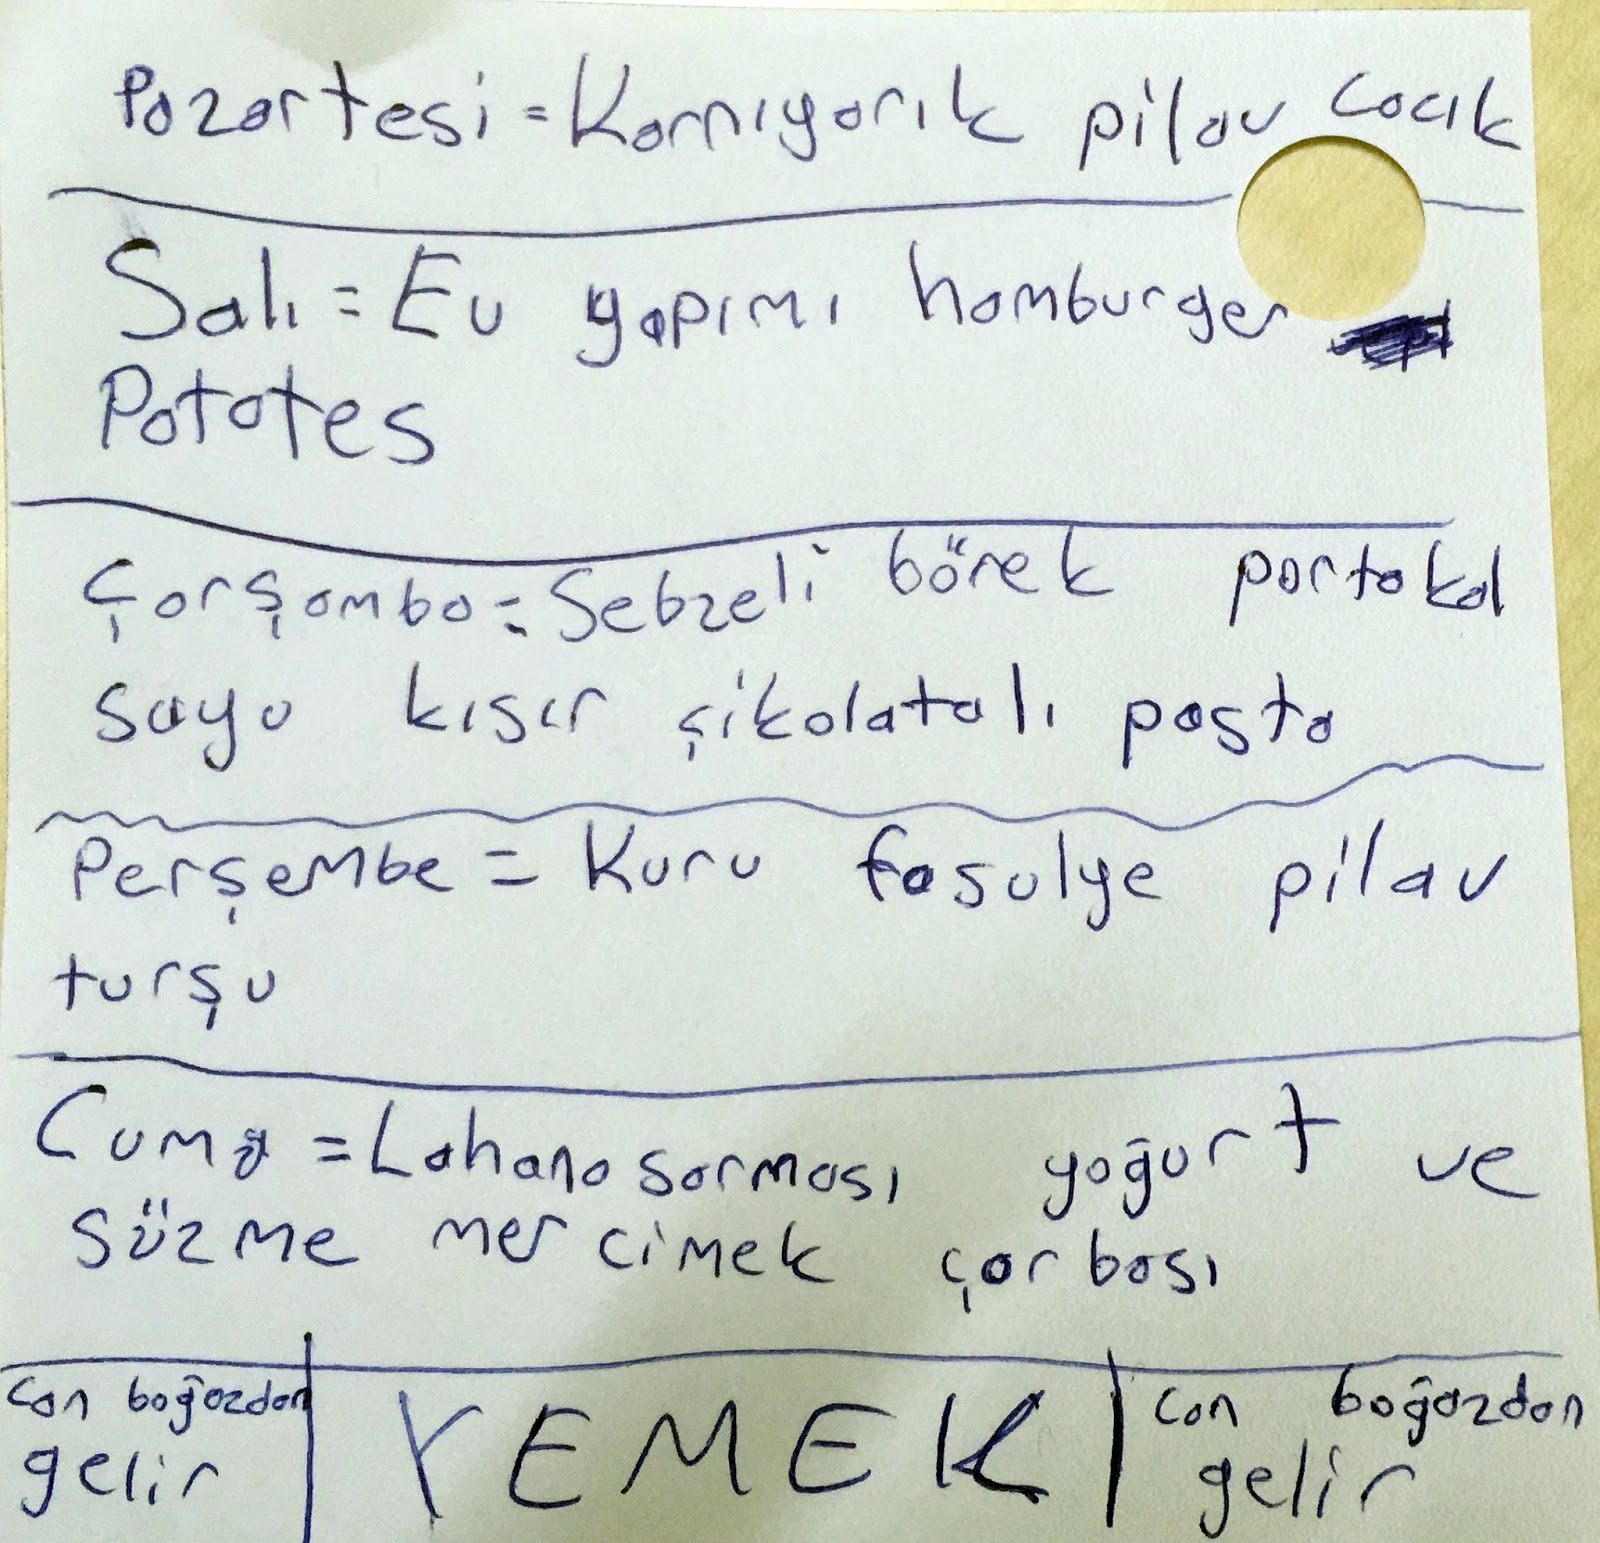 Pazartesi = Karnıyarık pilav cacık
Salı = Ev yapımı hamburger
Patates
Çarşamba = Sebzeli börek portakal
sayu kısır şikolatalı pasta
Perşembe = Kuru fasulye pilav
turşu
Cuma = Lahana sarması yoğurt ve
süzme mercimek çorbası
can boğazdan
gelir
YEMEK
can boğazdan
gelir